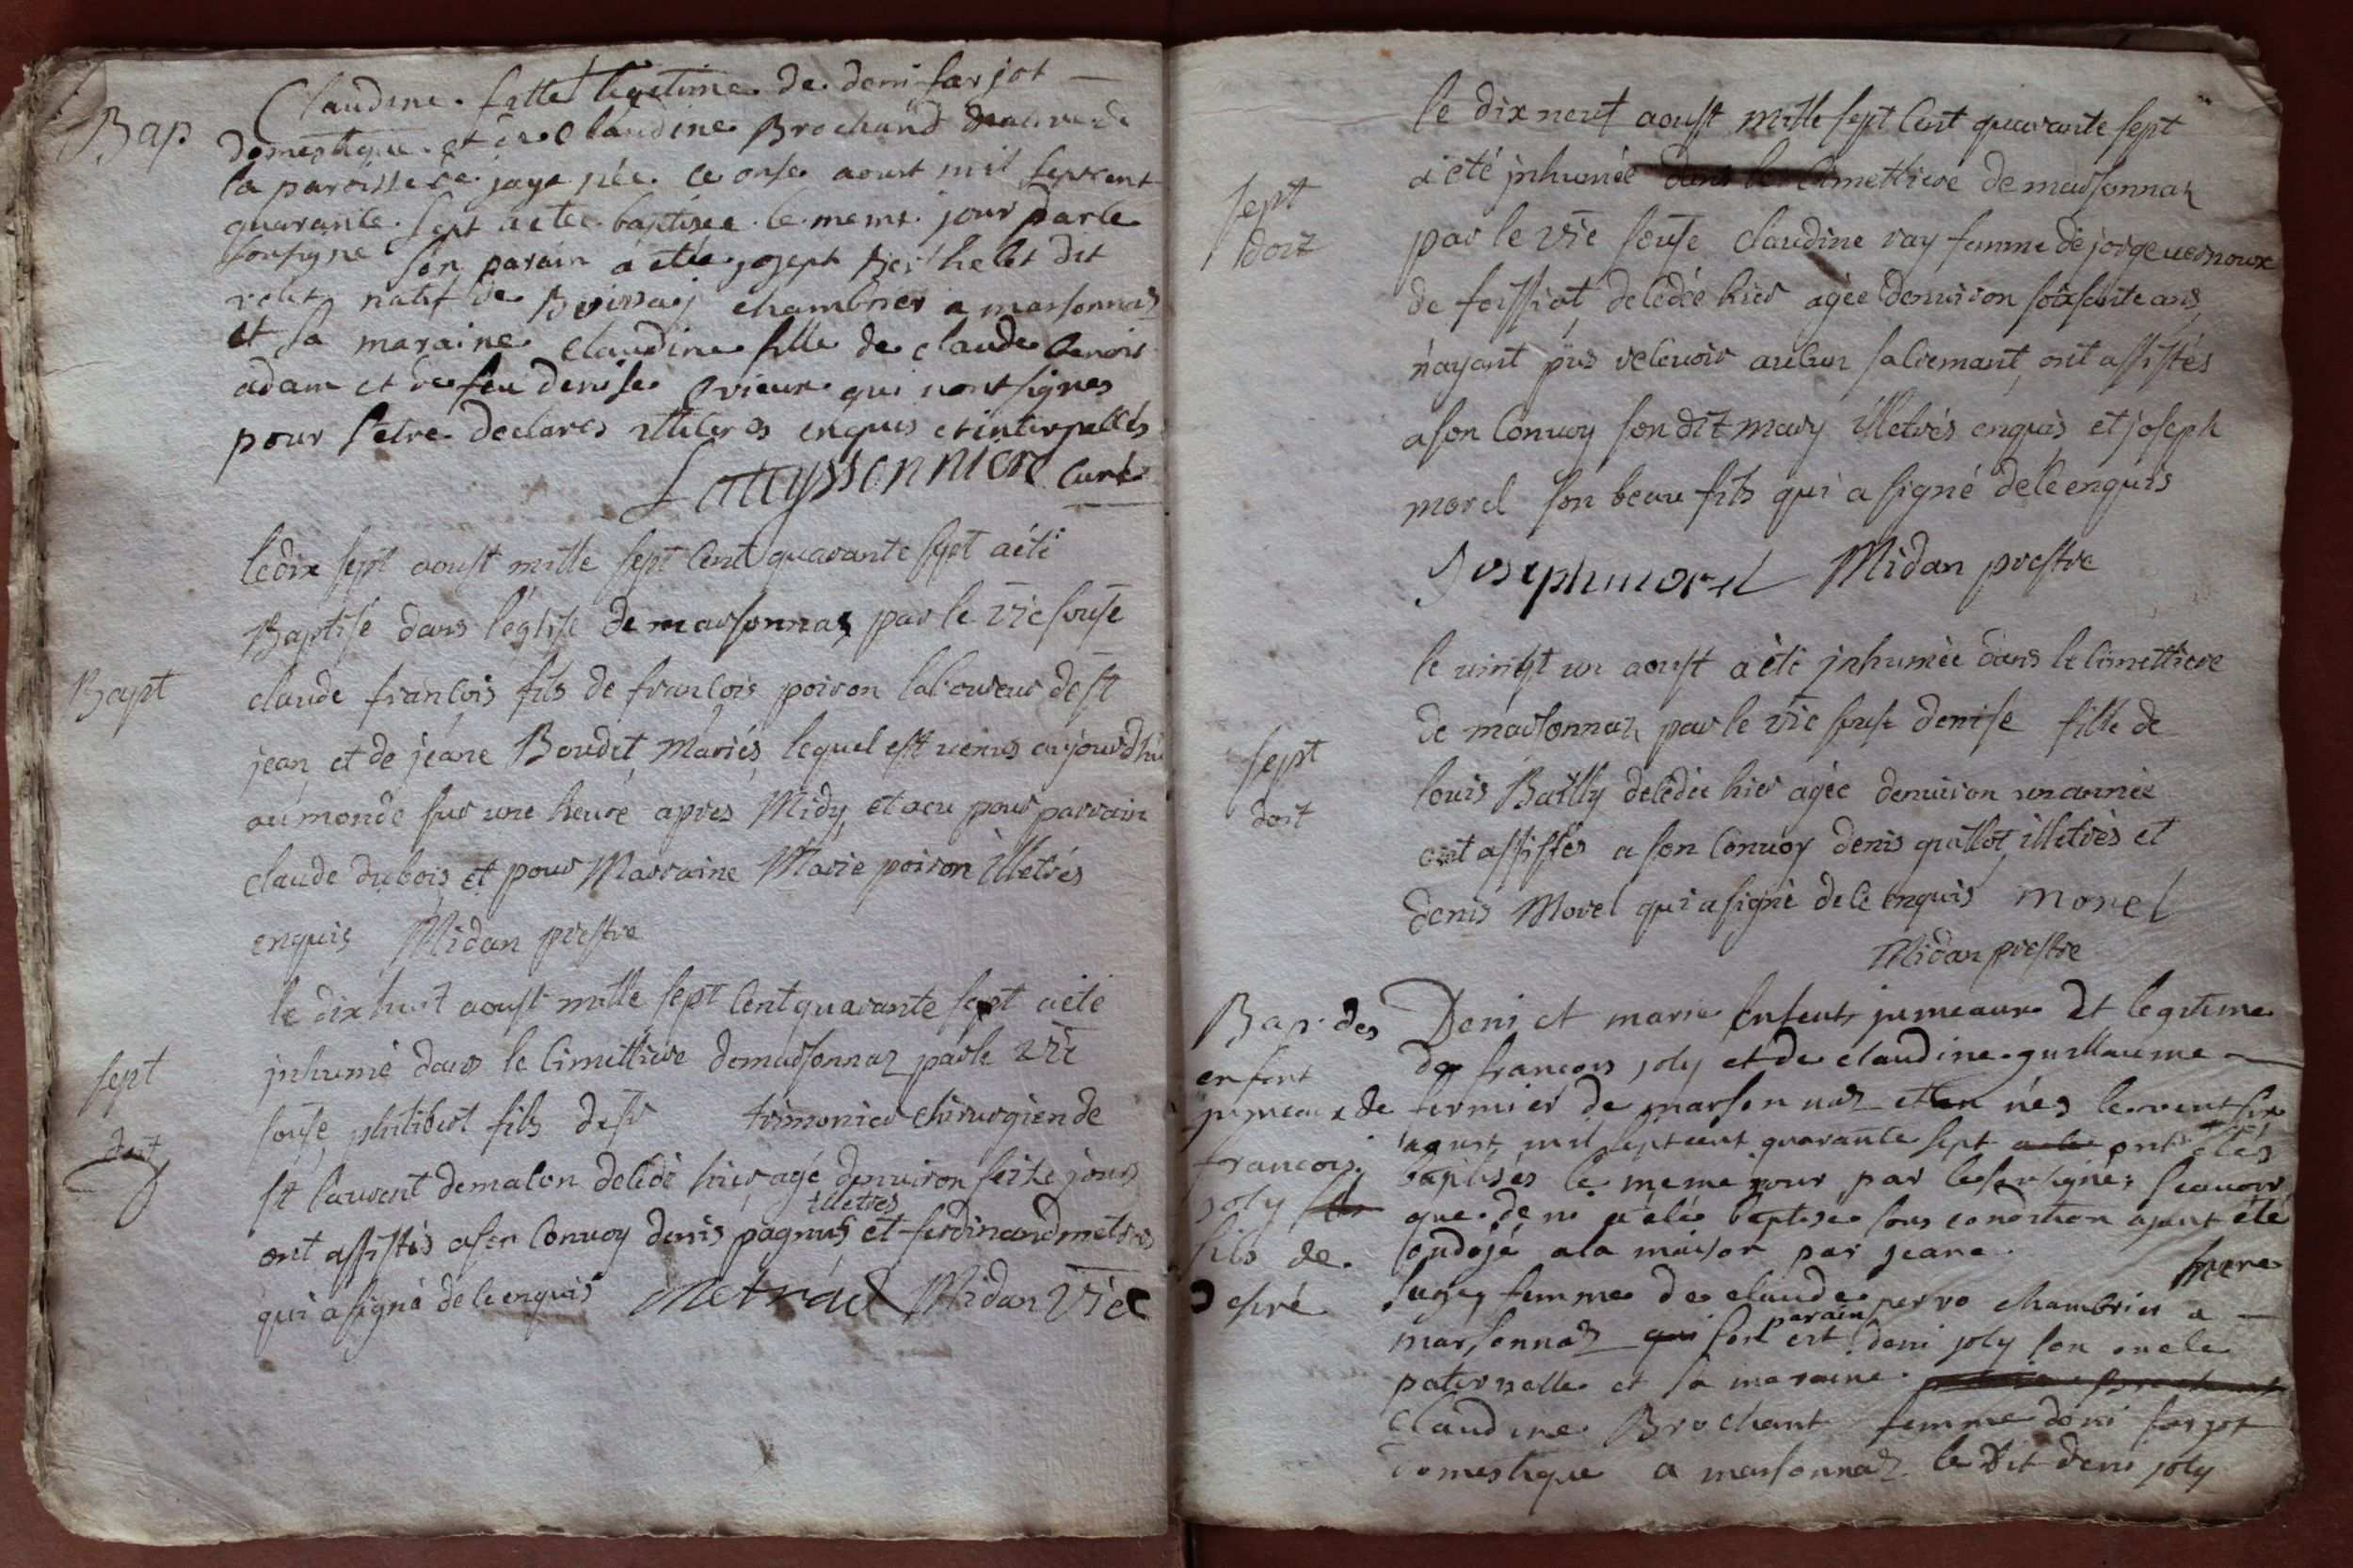 Bap
Claudine fille legitime de deni farjot
domestique et de Claudine Brochand
la paroisse de jaya née ce onse aoust mil sept cent
quarante sept a étée baptisée le meme jour par le
soussigné son parain a étée joseph dit
natif de chambrier a marsonnas
et sa maraine claudine fille de claude benoit
adam et de feu denise qui nont signes
pour setre declarés illiteres enquis et interpellés
curé
Bapt
le dix sept aoust mille sept Cent quarante sept a été
Baptisé dans l'église de marsonnaz par le Vic souse
claude francois fils de francois poiron laboureur de st
jean et de jeane Boudet Mariés lequel est venus aujourdhui
au monde sur une heure apres Midy, et a eu pour parrain
claude dubois et pour Marraine Marie poiron illetrés
enquis Midan prestre
sept
doit
le dix huit aoust mille sept Cent quarante sept a été
inhumé dans le Cimettiere de marsonnaz par le Vic
souse philibert fils de sr trimonier chirurgien de
st laurent de macon decédé hier agé denviron seize jours
illetres
ont assistés a son Convoy denis pagnus et ferdinand metras
qui a signé de ce enquis Metras Midan Vic
sept
doit
le dix neuf aoust mille sept Cent quarante sept
a été jnhumée dans le Cimettiere de marsonnaz
par le Vic souse claudine ray femme de jorge vernoux
de foissiat decédée hier agée denviron soixsante ans
n'ayant pus recevoir aucun sacremant, ont assistés
a son Convoy son dit mary illetrés enquis et joseph
morel son beau fils qui a signé de ce enquis
Joseph morel Midan prestre
sept
doit
le vingt un aoust a été jnhumée dans le cimettiere
de marsonnaz par le Vic souse denise fille de
louis Bailly decédée hier agée denviron un année
ont assistés a son Convoy denis guillot illetrés et
denis Morel qui a signé de ce enquis morel
Midan prestre
Bap des
enfent
jumeaux de
francois
joly
fils de
Deni et marie Enfents jumeaux et legitime
de francois joly et de claudine guillaume
fermier de marsonnaz nés le vent six
aoust mil sept cent quarante sept ont étés
baptisés le meme jour par le soussigné, scauoir
que deni a été baptisé sous condition ayant été
ondojé a la maison par jeane
femme de claude chambrier a
parain
marsonnaz son est deni joly son oncle
paternelle et sa maraine
Claudine Brochant femme deni farjot
domestique a marsonnaz le dit deni joly